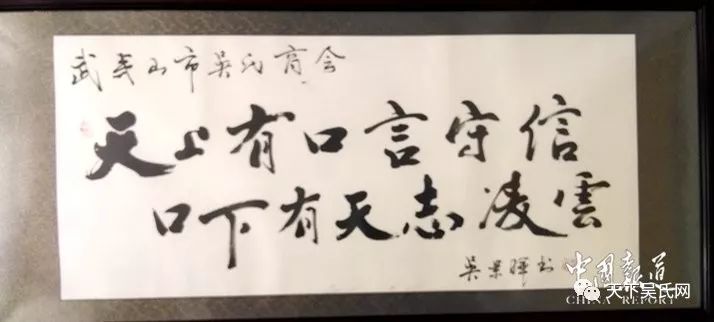 武夷山市吴氏商会
天上有口言守信
口下有天志凌雲
吴景晖书
中国报道
CHINA REPORT
天下吴氏网